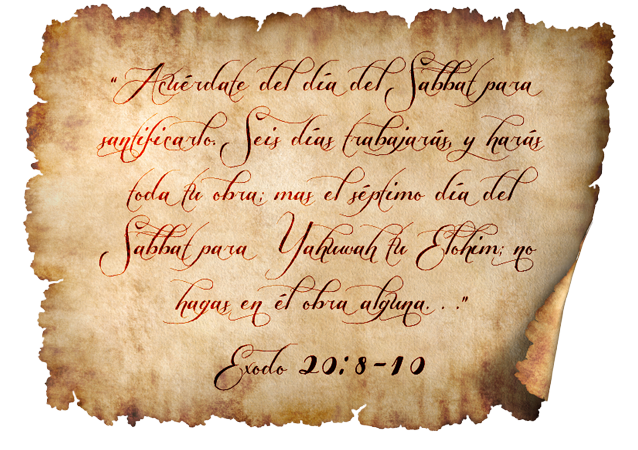 “ Acuérdate del día del Sabbat para
santificarlo. Seis días trabajarás, y harás
toda tu obra; mas el séptimo día del
Sabbat para Yahuwah tu Elohim; no
hagas en él obra alguna. . .”
Exodo 20:8-10